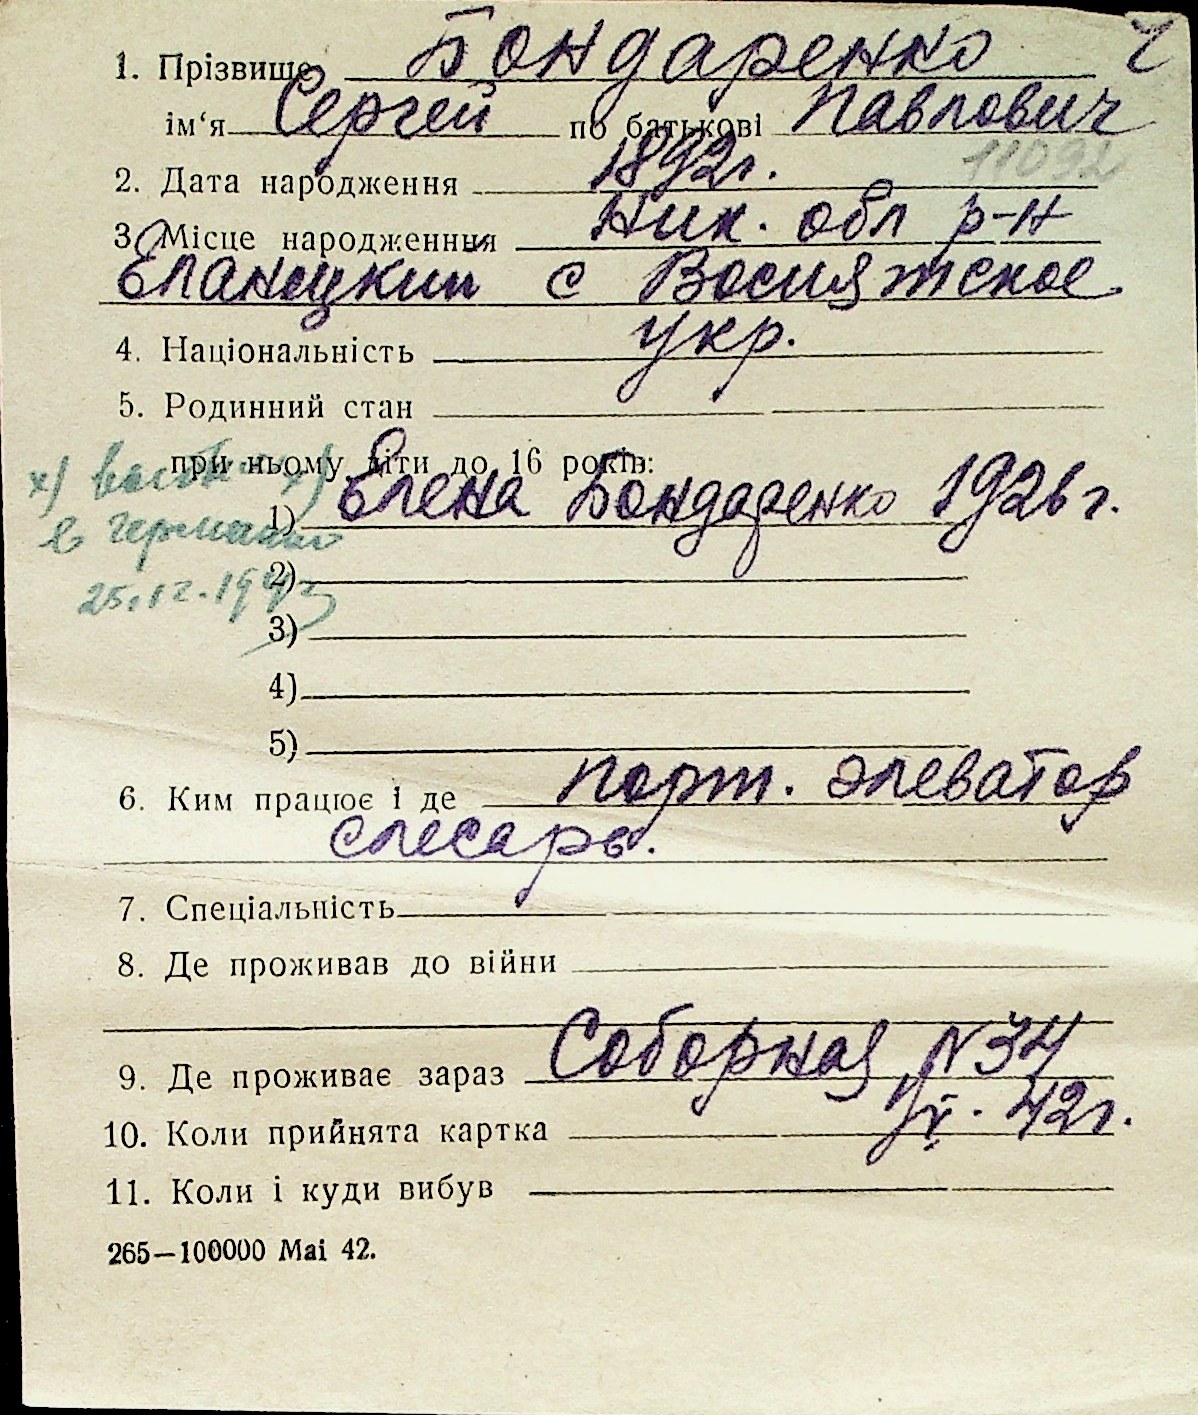 1. Прізвище Бондаренко
ім‘я Сергей по батькові Павлович
11092
2. Дата народження 1892г.
3. Місце народженння Ник. обл р-н
Еланецкий с Восиятское
4. Національність укр.
5. Родинний стан
при ньому діти до 16 років:
1) Елена Бондаренко 1926г.
х)
в германию
25.12.1943
2)
3)
4)
5)
6. Ким працює і де порт. элеватор
слесарь.
7. Спеціальність
8. Де проживав до війни
9. Де проживає зараз Соборная N 34
10. Коли прийнята картка 42г.
11. Коли і куди вибув
265—100000 Mai 42.